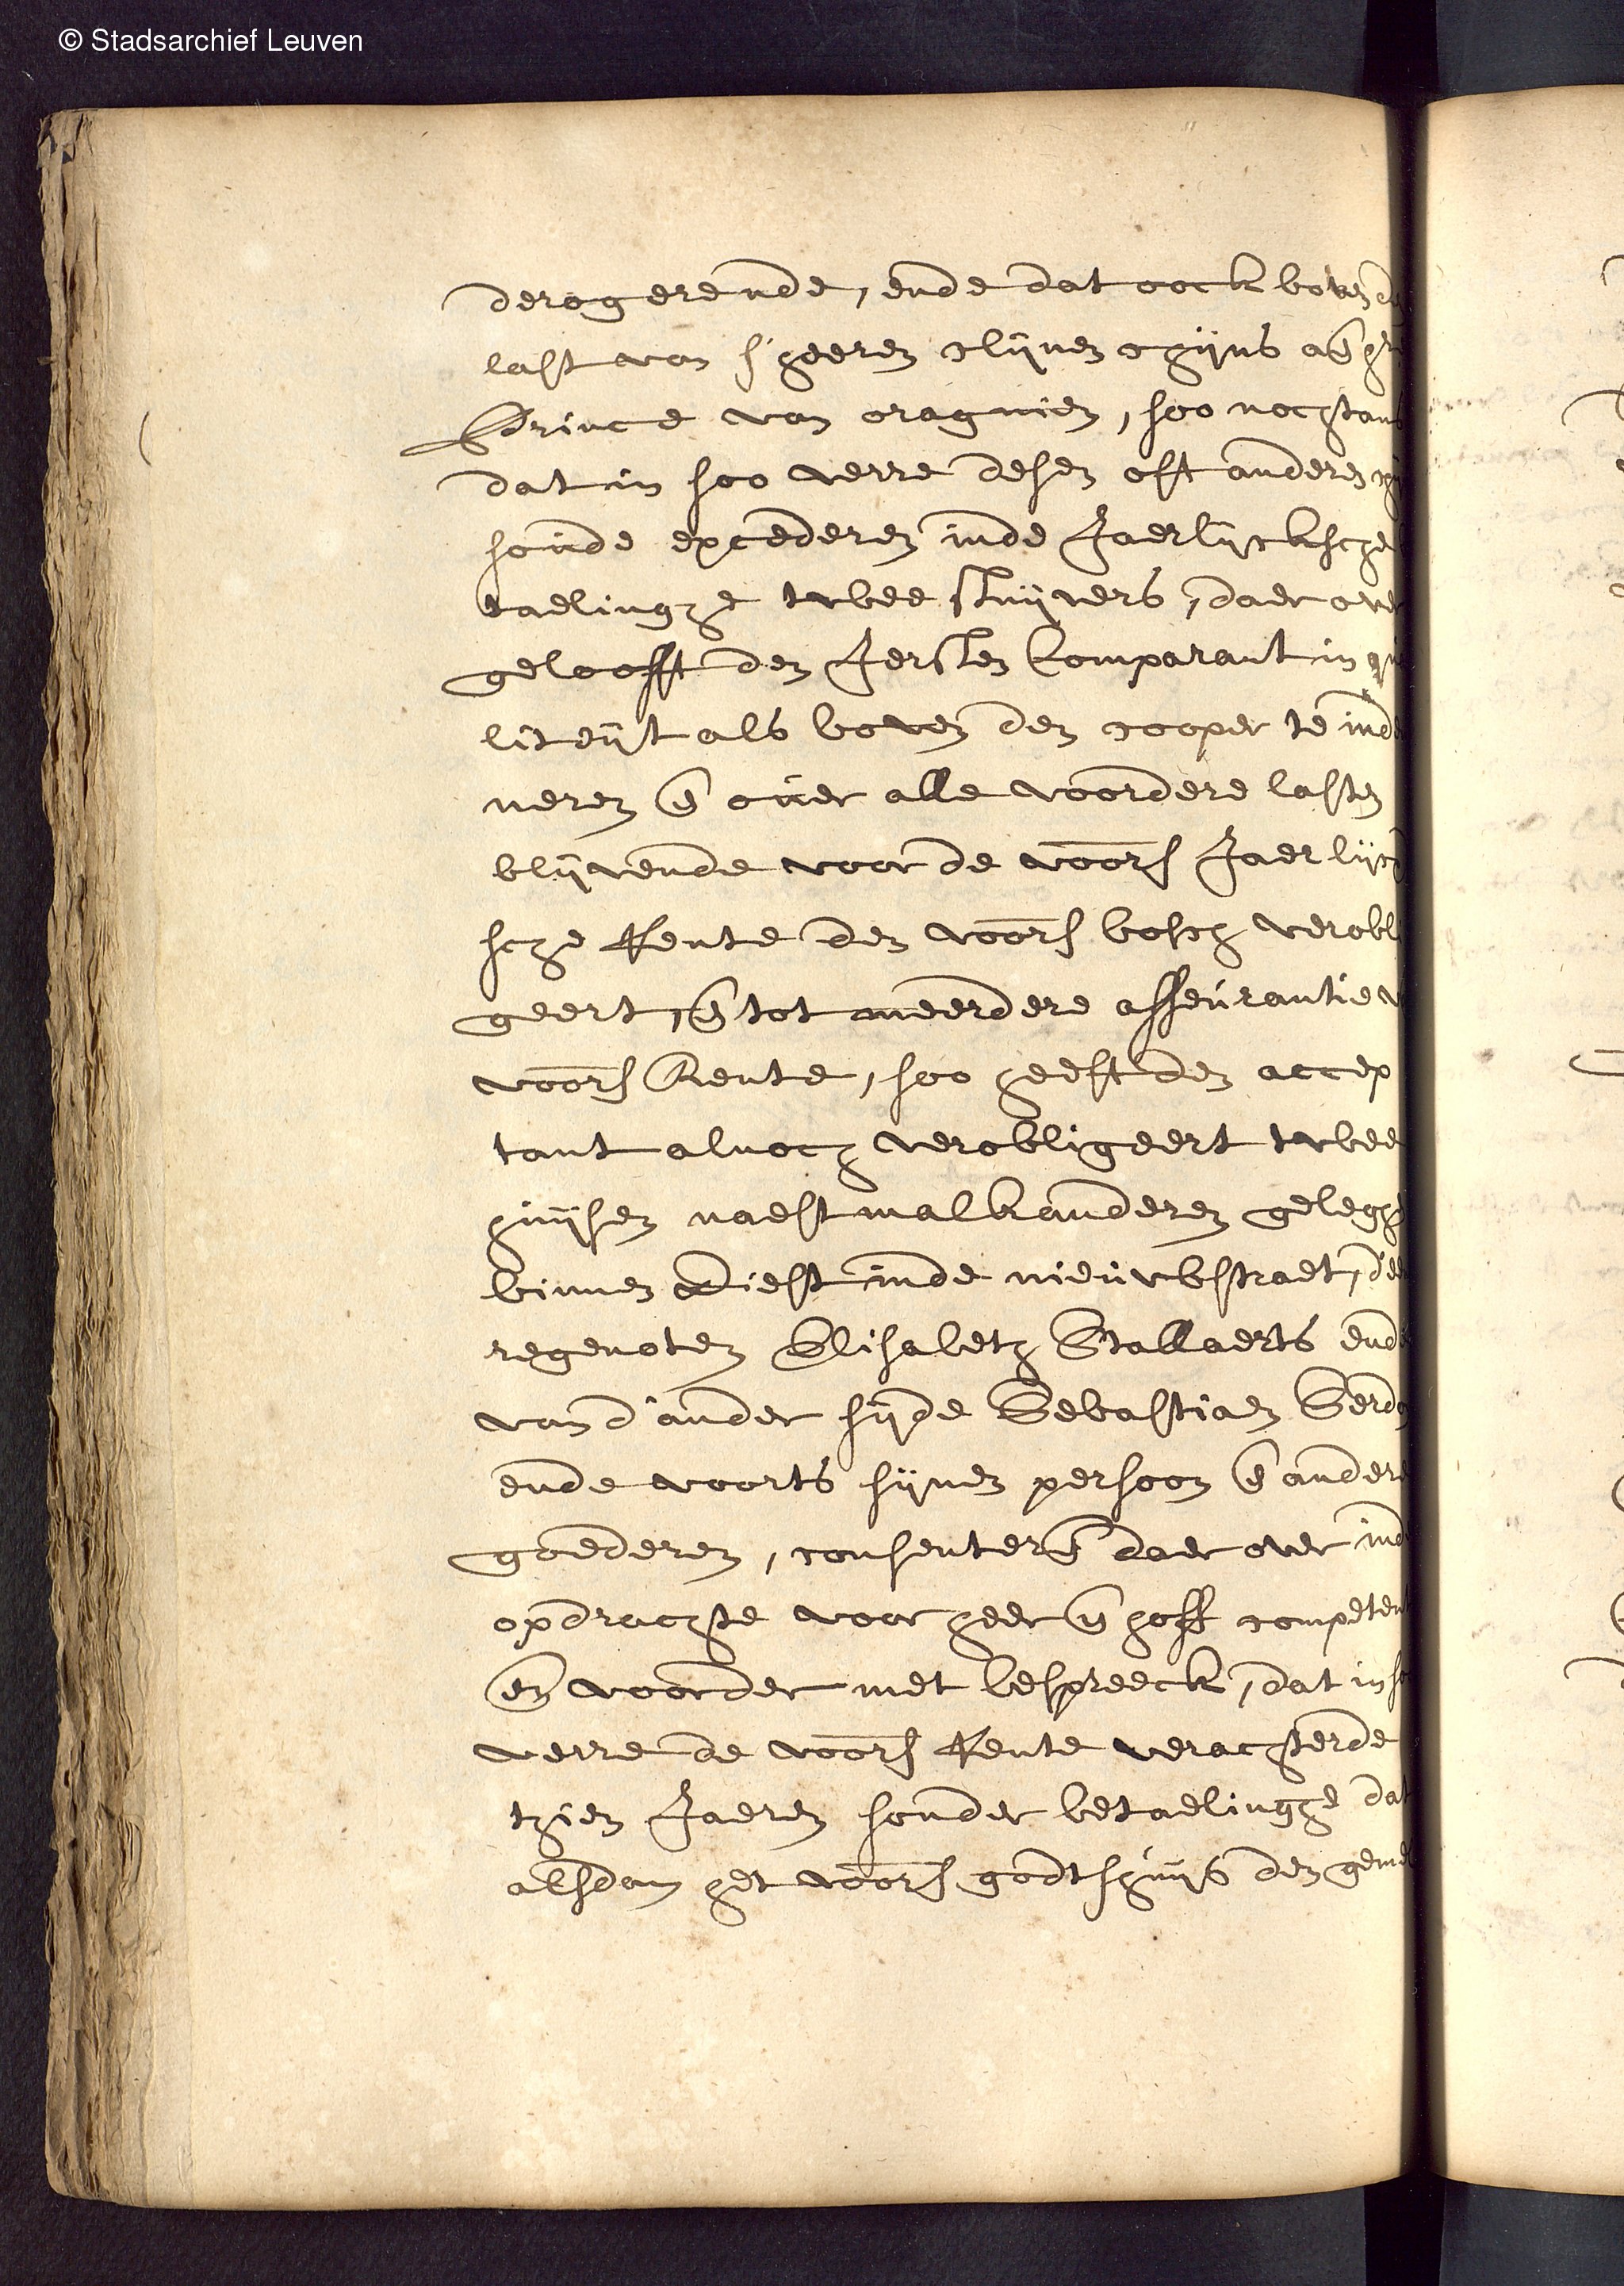 © Stadsarchief Leuven
derogerende, ende dat oock boven d
last van s'heeren clijnen chijns aen
Prince van oragnien, soo nochtans
dat in soo verre desen oft anderen
soude excederen inde Jaerlijcksche
taelinghe twee stuijvers, daer over
gelooft den Jersten Comparant in
liteijt als boven den cooper te inde
neren en̄ over alle voordere lasten
blijvende voor de voors Jaerlijc
sche Rente den voors bosch verobl
geert, en̄ tot meerdere asseurantie
voors Rente, soo heeft den accep
tant alnoch verobligeert twee
huijsen naest malkanderen gelegh
binnen Diest inde nieuwstraet, d'ee
regenoten Elisabeth Stallaerts ende
van d'ander sijde Sebastiaen
ende voorts sijnen persoon en̄ andere
goederen, consenteren̄ daer over ind
opdrachte voor heer en̄ hoff competen
en̄ voorder met bespreeck, dat in
verre de voors Rente verachterde
thien Jaeren sonder betaelinghe dat
alsdan het voors godtshuijs den gemel